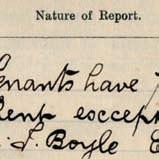 Nature of Report.
enants have
ent except
. J. Boyle